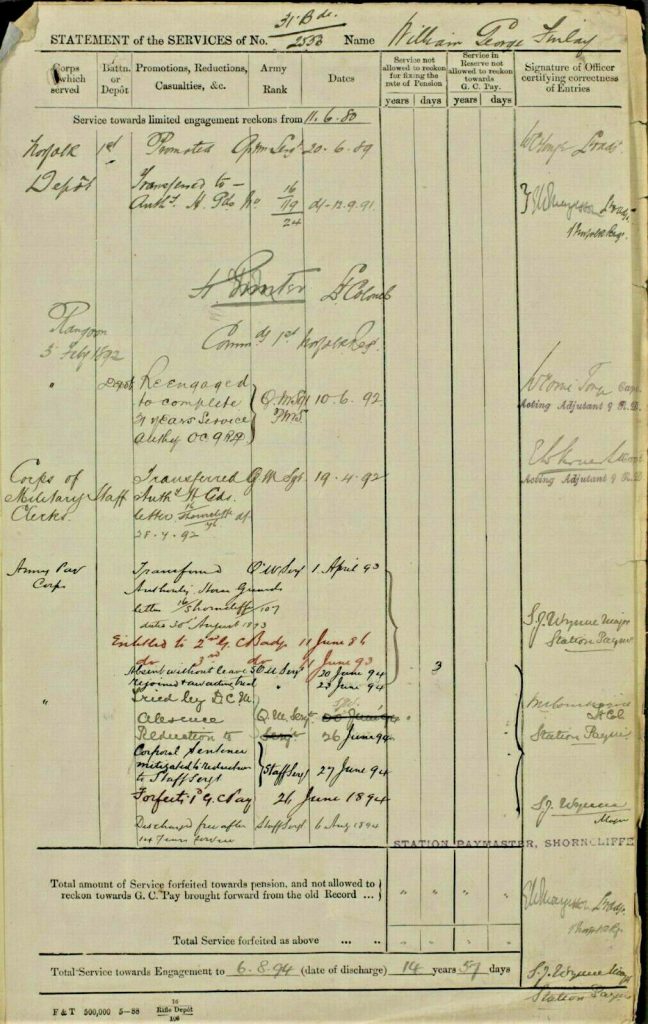 31 Bde.
STATEMENT of the SERVICES of No. 2533 Name William George Finlay
Corps in which served
Battn. or Depôt
Promotions, Reductions, Casualties, &c.
Army Rank
Dates
Service not allowed to reckon for fixing the rate of Pension
Service in Reserve not allowed to reckon towards G. C. Pay.
Signature of Officer certifying correctness of Entries
years days years days
Service towards limited engagement reckons from 11.6.80
Norfolk 1st Promoted Sergt 20-6-89
Depôt Transferred to -
Authy. H. Gds No 16/119/24 d/- 12.9.91
Lt Colonel
Rangoon
5 Feby 1892
Commdg 1st Norfolk Reg.
" Depôt Re engaged to complete 21 years Service Q.M. Sgt 10.6.92
Capt.
Acting Adjutant 9 R.D.
Acting Adjutant 9 R.D.
Corps of Military Clerks Staff Transferred Q M Sgt. 19.4.92
Authy H Gds.
letter Shorncliffe d/
28.4.92
Army Pay Corps Transferred Q M Sergt 1 April 93
Authority Horse Guards
letter 16/Shorncliffe/107
dated 30th August 1893
S.J. Wynne Major
Station Paymr
Entitled to 2nd G.C. Badge 11 June 86
do 3rd do 11 June 93
Absent without leave Q M Sergt 20 June 94 3
Rejoined & awaiting trial " 23 June 94
" Tried by D.C.M.
Absence Q. M. Sergt.
Reduction to Sergt 26 June 94
Lt Col
Station Paymr
Corporal Sentence
mitigated to reduction
to Staff Sergt Staff Sergt 27 June 94
Forfeits 1d G.C. Pay 26 June 1894
S.J. Wynne
Major
Discharged free after Staff Sergt 6 Aug 1894
14 years service
STATION PAYMASTER, SHORNCLIFFE
Total amount of Service forfeited towards pension, and not allowed to
reckon towards G. C. Pay brought forward from the old Record ... " " " "
Total Service forfeited as above ... ...
Total Service towards Engagement to 6.8.94 (date of discharge) 14 years 57 days
S.J. Wynne Major
Station Paymr
F & T 500,000 5-88
16
Rifle Depôt
106